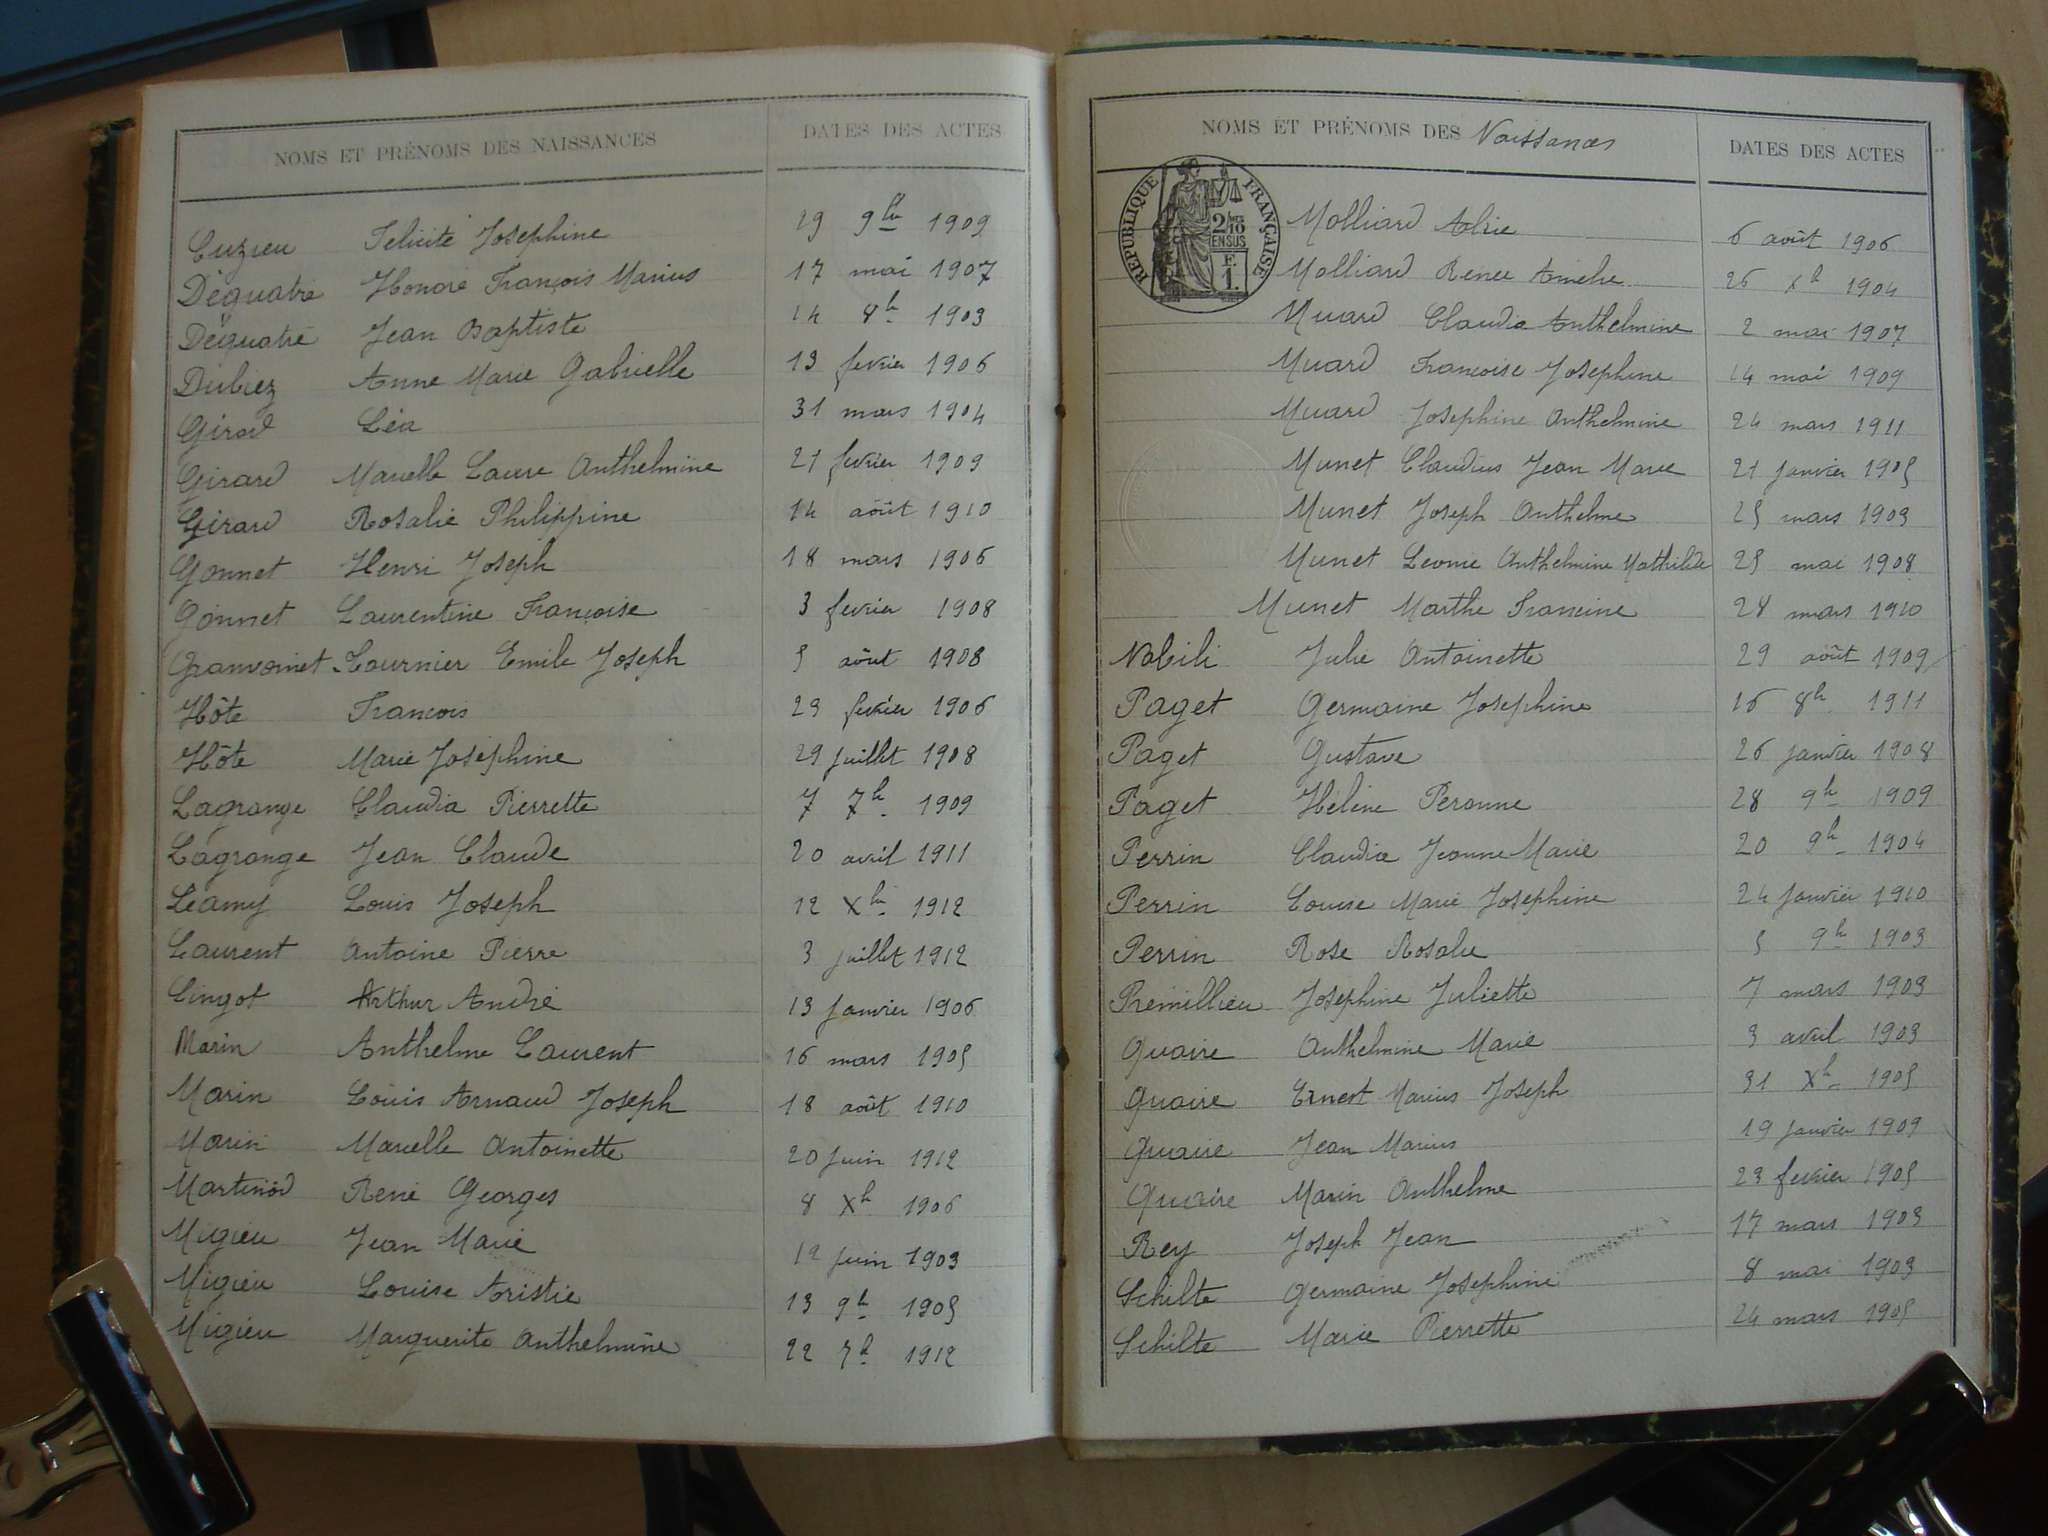 NOMS ET PRÉNOMS DES NAISSANCES DATES DES ACTES
Cuzieu Felicité Josephine 29 9bre 1909
Déquatre Honoré François Marius 17 mai 1907
Déquatre Jean Baptiste 14 8b 1903
Dubiez Anne Marie Gabrielle 13 fevrier 1906
Girod Léa 31 mars 1904
Girard Marcelle Laure Anthelmine 21 fevrier 1909
Girard Rosalie Philippine 14 août 1910
Gonnet Henri Joseph 18 mars 1906
Gonnet Laurentine Françoise 3 fevrier 1908
Granvoinet Lournier Emile Joseph 5 août 1908
Hôte François 23 fevrier 1906
Hôte Marie Joséphine 29 juillet 1908
Lagrange Claudia Pierrette 7 7b 1909
Lagrange Jean Claude 20 avril 1911
Léamy Louis Joseph 12 Xbre 1912
Laurent Antoine Pierre 3 juillet 1912
Lingot Arthur André 13 janvier 1906
Marin Anthelme Laurent 16 mars 1905
Marin Louis Arnaud Joseph 18 août 1910
Marin Marcelle Antoinette 20 juin 1912
Martinod René Georges 8 Xb 1906
Migieu Jean Marie 12 juin 1903
Migieu Louise Aristie 13 9b 1905
Migieu Marguerite Anthelmine 22 7b 1912
NOMS ET PRÉNOMS DES Naissances DATES DES ACTES
RÉPUBLIQUE FRANÇAISE
2/10
EN SUS
F.
1.
Molliard 6 août 1906
Molliard Renée Amelie 26 Xb 1904
Muard Claudia Anthelmine 2 mai 1907
Muard Françoise Josephine 14 mai 1909
Muard Josephine Anthelmine 24 mars 1911
Munet Claudius Jean Marie 21 janvier 1905
Munet Joseph Anthelme 25 mars 1903
Munet Leonie Anthelmine Mathilde 25 mai 1908
Munet Marthe Francine 28 mars 1910
Nobili Julie Antoinette 29 août 1909
Paget Germaine Josephine 16 8b 1911
Paget Gustave 26 janvier 1908
Paget Hélène Peronne 28 9b 1909
Perrin Claudia Jeanne Marie 20 9b 1904
Perrin Louise Marie Josephine 24 janvier 1910
Perrin Rose Rosalie 5 9b 1903
Prémillieu Joséphine Juliette 7 mars 1903
Quaire Anthelmine Marie 3 avril 1903
Quaire Ernest Marius Joseph 31 Xb 1905
Quaire Jean Marius 19 janvier 1909
Quaire Marin Anthelme 23 fevrier 1905
Rey Joseph Jean 17 mars 1903
Schilte Germaine Josephine 8 mai 1903
Schilte Marie Pierrette 24 mars 1905